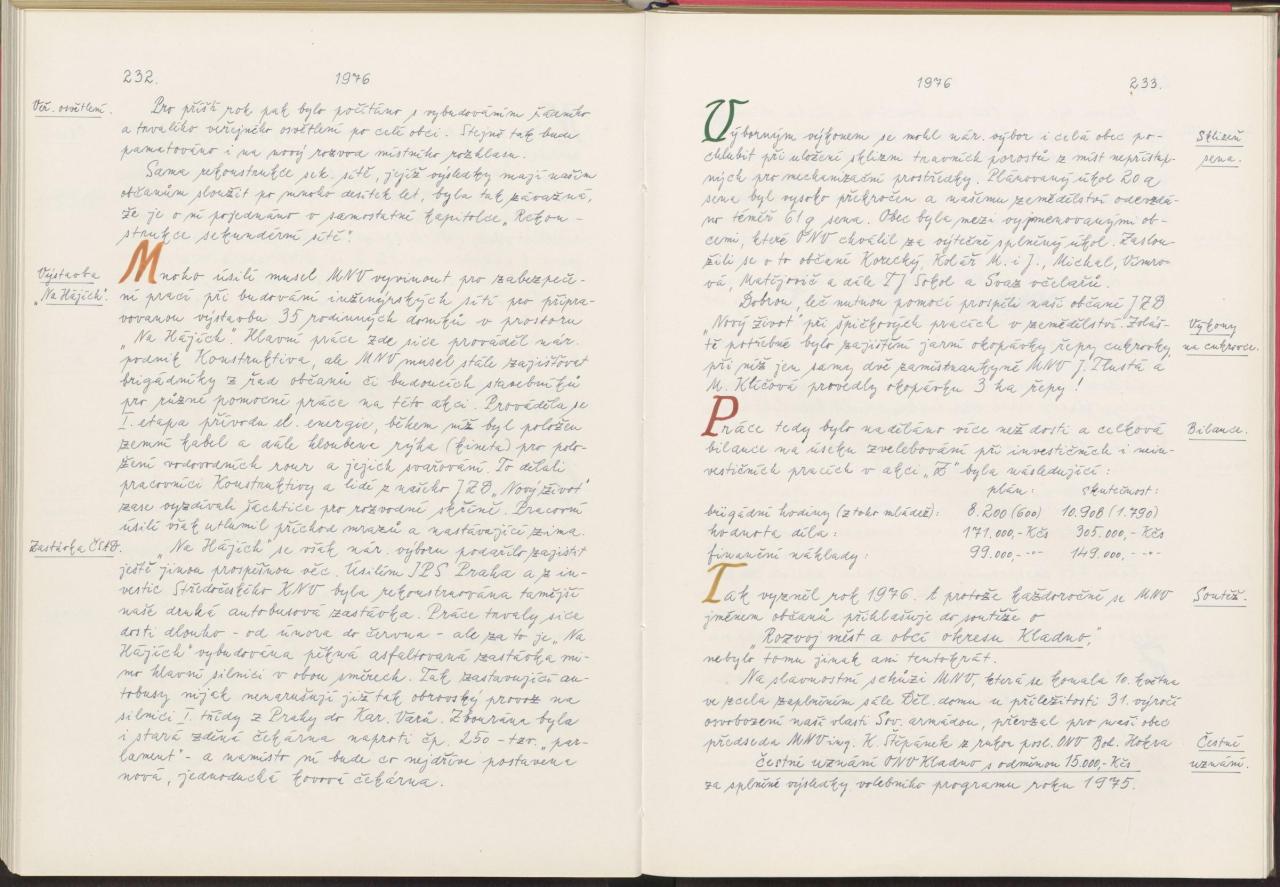 232.
1976
Veř. osvětlení.
Pro příští rok pak bylo počítáno s vybudováním řádného
a trvalého veřejného osvětlení po celé obci. Stejně tak bude
pamatováno i na nový rozvod místního rozhlasu.
Sama rekonstrukce sek. sítě, jejíž výsledky mají našim
občanům sloužit po mnoho desítek let, byla tak závažná,
že je o ní pojednáno v samostatné kapitolce „Rekon-
strukce sekundérní sítě".
Výstavba
„Na Hájích".
Mnoho úsilí musel MNV vyvinout pro zabezpeče-
ní prací při budování inženýrských sítí pro připra-
vovanou výstavbu 35 rodinných domků v prostoru
„Na Hájích". Hlavní práce zde sice prováděl nár.
podnik Konstruktiva, ale MNV musel stále zajišťovat
brigádníky z řad občanů či budoucích stavebníků
pro různé pomocné práce na této akci. Prováděla se
I. etapa přívodu el. energie, během níž byl položen
zemní kabel a dále hloubena rýha (kineta) pro polo-
žení vodovodních rour a jejich svařování. To dělali
pracovníci Konstruktivy a lidé z našeho JZD „Nový život"
zase vyzdívali šachtice pro rozvodné skříně. Pracovní
úsilí však utlumil příchod mrazů a nastávající zima.
Zastávka ČSAD.
„Na Hájích" se však nár. výboru podařilo zajistit
ještě jinou prospěšnou věc. Úsilím IPS Praha a z in-
vestic Středočeského KNV byla rekonstruována tamější
naše druhá autobusová zastávka. Práce trvaly sice
dosti dlouho - od února do června - ale za to je „Na
Hájích" vybudována pěkná asfaltovaná zastávka mi-
mo hlavní silnici v obou směrech. Tak zastavující au-
tobusy nijak nenarušují již tak obrovský provoz na
silnici I. třídy z Prahy do Kar. Varů. Zbourána byla
i stará zděná čekárna naproti čp. 250 - tzv. „par-
lament" - a namísto ní bude co nejdříve postavena
nová, jednoduchá kovová čekárna.
1976
233.
Výborným výkonem se mohl nár. výbor i celá obec po-
chlubit při uložení sklizni travních porostů z míst nepřístup-
ných pro mechanizační prostředky. Plánovaný úkol 20 q
sena byl vysoko překročen a našemu zemědělství odevzdá-
no téměř 61 q sena. Obec byla mezi vyjmenovanými ob-
cemi, které ONV chválil za výtečně splněný úkol. Zaslou-
žili se o to občané Korecký, Kolář M. i J., Michal, Vimro-
vá, Matějovič a dále TJ Sokol a Svaz včelařů.
Sklizeň
sena.
Dobrou, leč nutnou pomocí prospěli naši občané JZD
„Nový život" při špičkových pracích v zemědělství. Zvláš-
tě potřebné bylo zajištění jarní okopávky řepy cukrovky,
při níž jen samy dvě zaměstnankyně MNV J. Tlustá a
M. Kličová provedly okopávku 3 ha řepy!
Výkony
na cukrovce.
Práce tedy bylo naděláno více než dosti a celková
bilance na úseku zvelebování při investičních i nein-
vestičních pracích v akci „Z" byla následující:
Bilance.
plán: skutečnost:
brigádní hodiny (z toho mládež): 8.200 (600) 10.908 (1.790)
hodnota díla: 171.000,- Kčs 305.000,- Kčs
finanční náklady: 99.000,- -"- 149.000,- -"-
Tak vyzněl rok 1976. A protože každoročně se MNV
jménem občanů přihlašuje do soutěže o
„Rozvoj měst a obcí okresu Kladno",
nebylo tomu jinak ani tentokrát.
Soutěž.
Na slavnostní schůzi MNV, která se konala 10. května
ve zcela zaplněném sále Děl. domu u příležitosti 31. výročí
osvobození naší vlasti Sov. armádou, převzal pro naši obec
předseda MNV ing. K. Štěpánek z rukou posl. ONV Boh. Hokva
čestné uznání ONV Kladno s odměnou 15.000,- Kčs
za splněné výsledky volebního programu roku 1975.
Čestné
uznání.